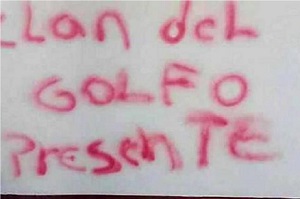 cLan deL
GOLFO
PresenTE